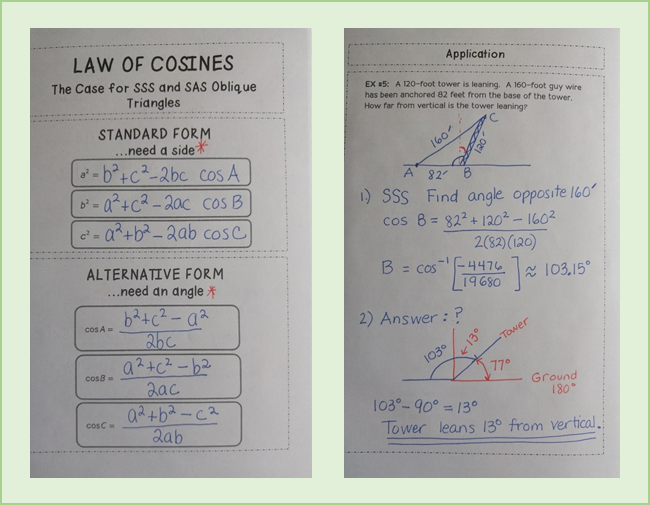 LAW OF COSINES
The Case for SSS and SAS Oblique
Triangles
STANDARD FORM
...need a side*
a² = b²+c²-2bc cos A
b² = a²+c²-2ac cos B
c² = a²+b²-2ab cos C
ALTERNATIVE FORM
...need an angle*
cos A = b²+c²-a² / 2bc
cos B = a²+c²-b² / 2ac
cos C = a²+b²-c² / 2ab
Application
EX #5: A 120-foot tower is leaning. A 160-foot guy wire
has been anchored 82 feet from the base of the tower.
How far from vertical is the tower leaning?
C
160'
120'
A
82'
B
1) SSS Find angle opposite 160'
cos B = 82² + 120² - 160² / 2(82)(120)
B = cos⁻¹ [-4476 / 19680] ≈ 103.15°
2) Answer: ?
103°
13°
Tower
77°
Ground
180°
103° - 90° = 13°
Tower leans 13° from vertical.